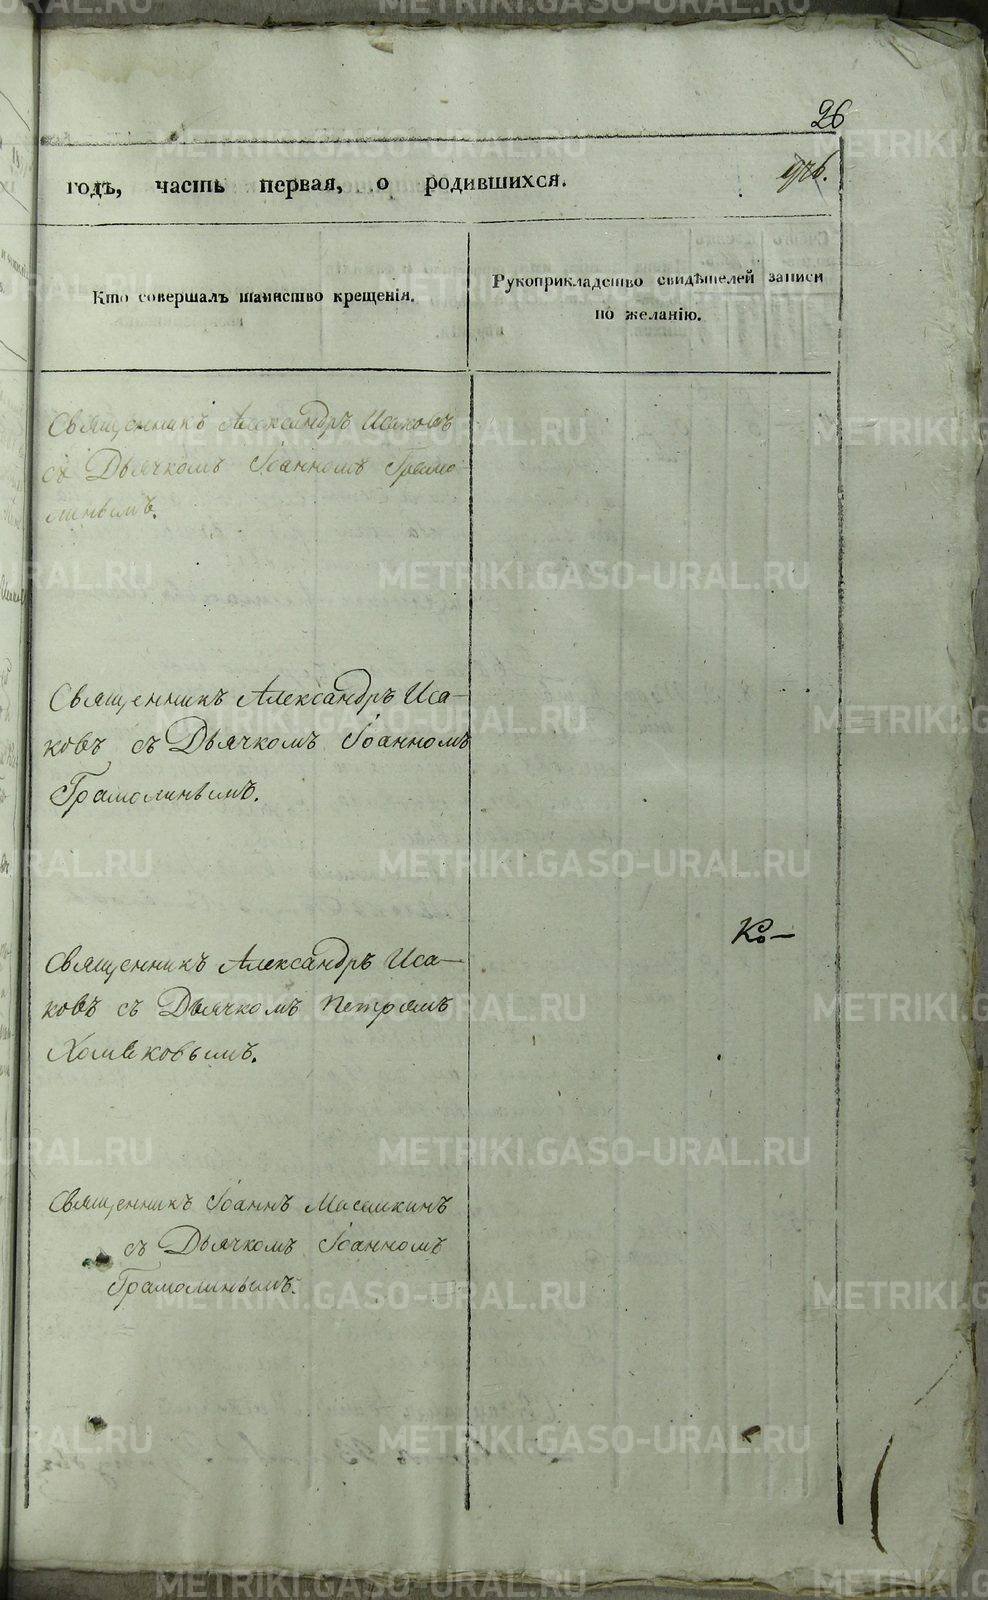 26
годъ, часть первая, о родившихся.
Кто совершалъ таинство крещенія.
Рукоприкладство свидѣтелей записи
по желанію.
Священникъ Александръ Исаковъ
съ Дьячкомъ Іоанномъ Грамо
линымъ.
Священникъ Александръ Иса-
ковъ съ Дьячкомъ Іоанномъ
Грамолинымъ.
Ко-
Священникъ Александръ Иса-
ковъ съ Дьячкомъ Петромъ
Хомяковымъ.
Священникъ Іоаннъ
съ Дьячкомъ Іоанномъ
Грамолинымъ.
METRIKI.GASO-URAL.RU